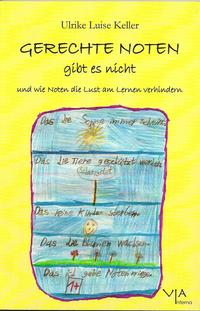 Ulrike Luise Keller
GERECHTE NOTEN
gibt es nicht
und wie Noten die Lust am Lernen verhindern
Das die Sonne immer scheint.
Das die Tiere geschützt werden
Das keine Kinder sterben.
Das die Blumen wachsen
Das es gute Noten
1+
VIA
Interna